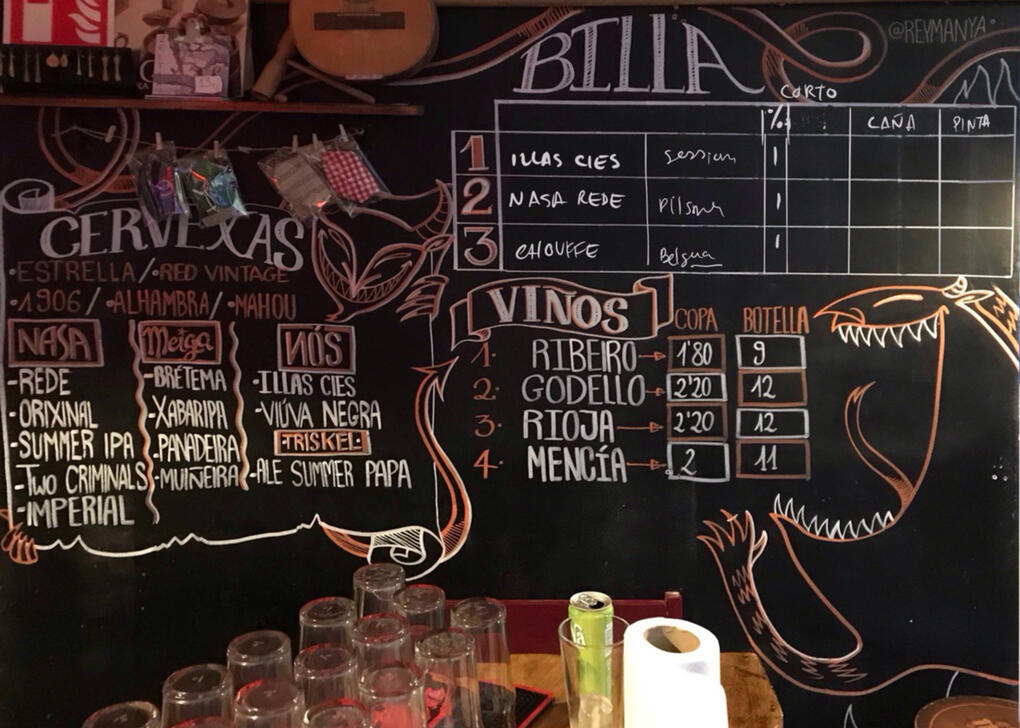 @REYMANYA
BILLA
CORTO
% CAÑA PINTA
1 ILLAS CIES Session
2 NASA REDE Pilsner
3 CHOUFFE Belgua
CERVEXAS
·ESTRELLA/·RED VINTAGE
·1906/·ALHAMBRA/·MAHOU
NASA
-REDE
-ORIXINAL
-SUMMER IPA
-TWO CRIMINALS
-IMPERIAL
Meiga
-BRÉTEMA
-XABARIPA
-PANADEIRA
-MUIÑEIRA
NÓS
-ILLAS CIES
-VIÚVA NEGRA
·TRISKEL·
-ALE SUMMER PAPA
VIÑOS COPA BOTELLA
1· RIBEIRO 1'80 9
2· GODELLO 2'20 12
3· RIOJA 2'20 12
4· MENCÍA 2 11